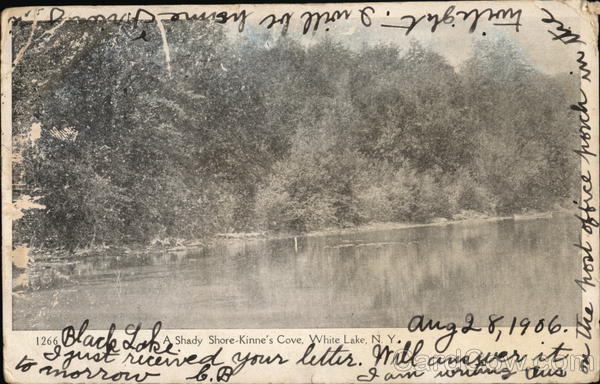 1266 A Shady Shore-Kinne's Cove, White Lake, N. Y.
Black Lak
Aug 28, 1906.
I just received your letter. Will answer it
to morrow C.B I am writing this
on the post office porch in the
twilight. I will be home
CardCow.com